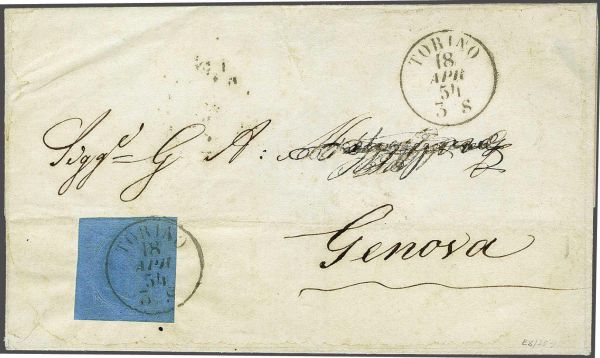 TORINO
18
APR
54
3 S
Sigg.i G A:
Genova
TORINO
18
APR
54
3 S